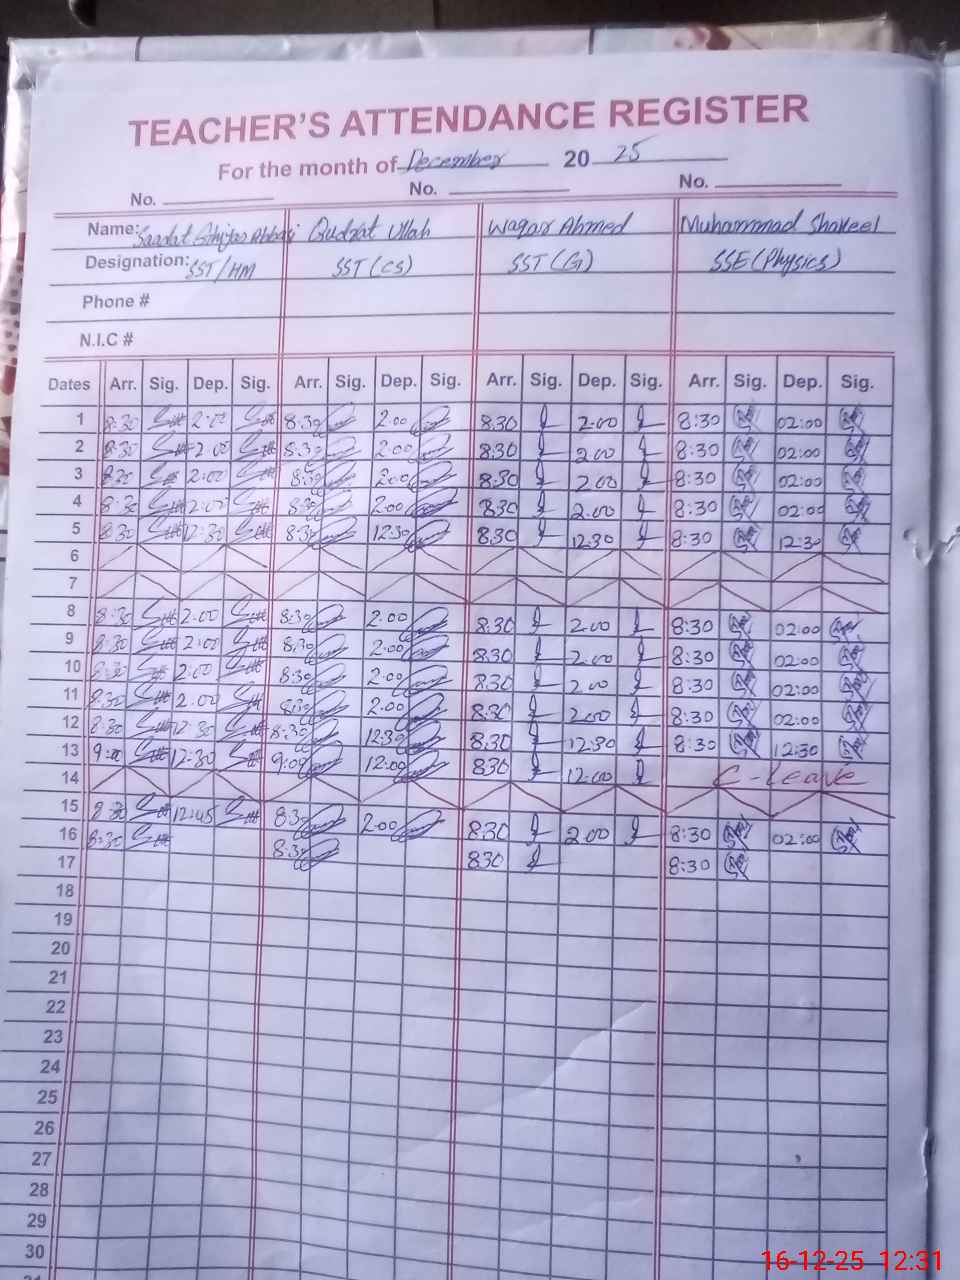 TEACHER'S ATTENDANCE REGISTER
For the month of December 20 25
No. No. No.
Name: Qudrat Ullah Waqar Ahmed Muhammad Shakeel
Designation: SST/HM SST(CS) SST(G) SSE(Physics)
Phone #
N.I.C #
Dates Arr. Sig. Dep. Sig. Arr. Sig. Dep. Sig. Arr. Sig. Dep. Sig. Arr. Sig. Dep. Sig.
1 8:30 2:00 8:30 2.00 8.30 2.00 8:30 02:00
2 8:30 2.00 8:30 2.00 8.30 2.00 8:30 02:00
3 8:30 2:00 8:30 2.00 8.30 2.00 8:30 02:00
4 8:30 2:00 8:30 2.00 8.30 2.00 8:30 02:00
5 8:30 12:30 8:30 12:30 8.30 12.30 8:30 12:30
6
7
8 8:30 2.00 8:30 2.00 8.30 2.00 8:30 02:00
9 8:30 2:00 8:30 2.00 8.30 2.00 8:30 02:00
10 8:30 2.00 8:30 2.00 8.30 2.00 8:30 02:00
11 8:30 2.00 8:30 2.00 8.30 2.00 8:30 02:00
12 8:30 12:30 8:30 12:30 8.30 12.30 8:30 12:30
13 9:00 12:30 9:00 12:00 8.30 12.00 C-Leave
14
15 8:30 12:45 8:30 2.00 8.30 2.00 8:30 02:00
16 8:30 8:30 8.30 8:30
17
18
19
20
21
22
23
24
25
26
27
28
29
30
16-12-25 12:31